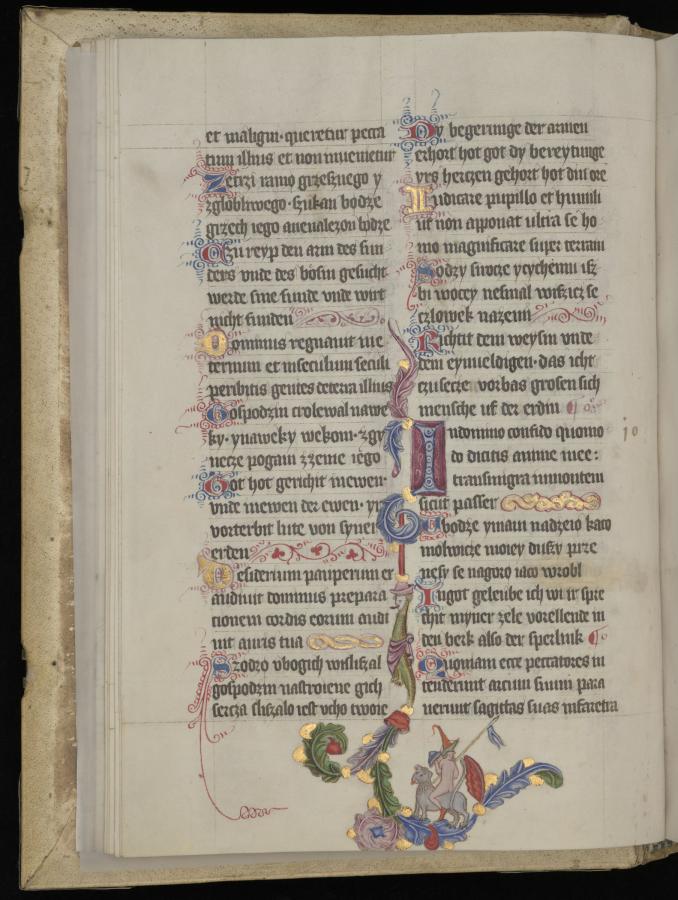 et maligni· queretur pecca
tum illius et non invenietur
Zetrzi ramo grzesznego y
zglobliwego· szukan bodze
grzech iego a nenalezon bodze
Czu reyp den arm des sun
ders vnde des bosin gesucht
werde sine sunde vnde wirt
nicht funden
Dominus regnauit ine
ternum et inseculum seculi
peribitis gentes deterra illius
Gospodzin crolewal nawe
ky· ynaweky wekom· zgy
necze pogani zzeme iego
Got hot gerichit inewen·
vnde inewen der ewen· yr
vorterbit lute von syner
erden
Desiderium pauperum ex
audiuit dominus prepara
cionem cordis eorum audi
uit auris tua
Zodzo vbogich wisluszal
gospodzin nastroiene gich
sercza sliszalo iest vcho twoie
Dy begerunge der armen
erhort hot got dy bereytunge
yrs herczen gehort hot din ore
Iudicare pupillo et humili
ut non apponat ultra se ho
mo magnificare super terram
Sodzy siroce ycychemu isz
bi wocey nesmal wisziczse
czlowek nazemi
Richtit dem weysin vnde
dem eynueldigen· das icht
czusecze vorbas grosen sich
mensche uf der erdin
Indomino confido quomo
do dicitis anime mee:
transmigra inmontem
sicut passer
Ubodze ymam nadzeio kaco
molwicze moiey duszy prze
nesy se nagoro iaco wrobl
Ingot geleube ich wi ir spre
chit myner zele vorellende in
den berk also der sperlink
Quoniam ecce peccatores in
tenderunt arcum suum para
uerunt sagittas suas infaretra
10